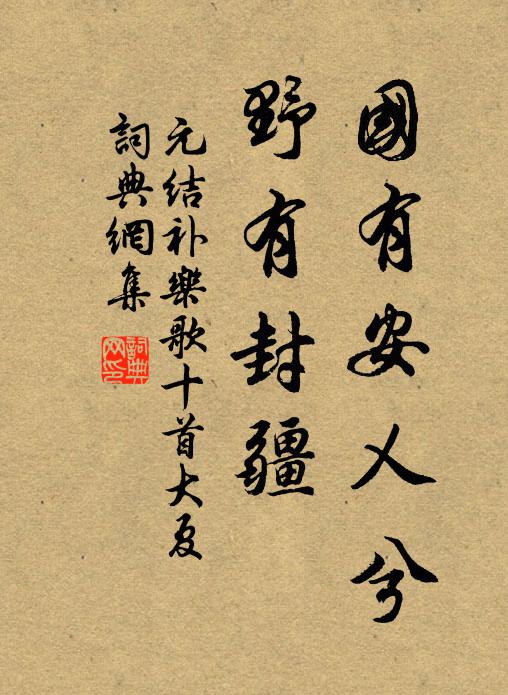 國有安乂兮
野有封疆
元結补樂歌十首大夏
詞典網集
詞典
网印